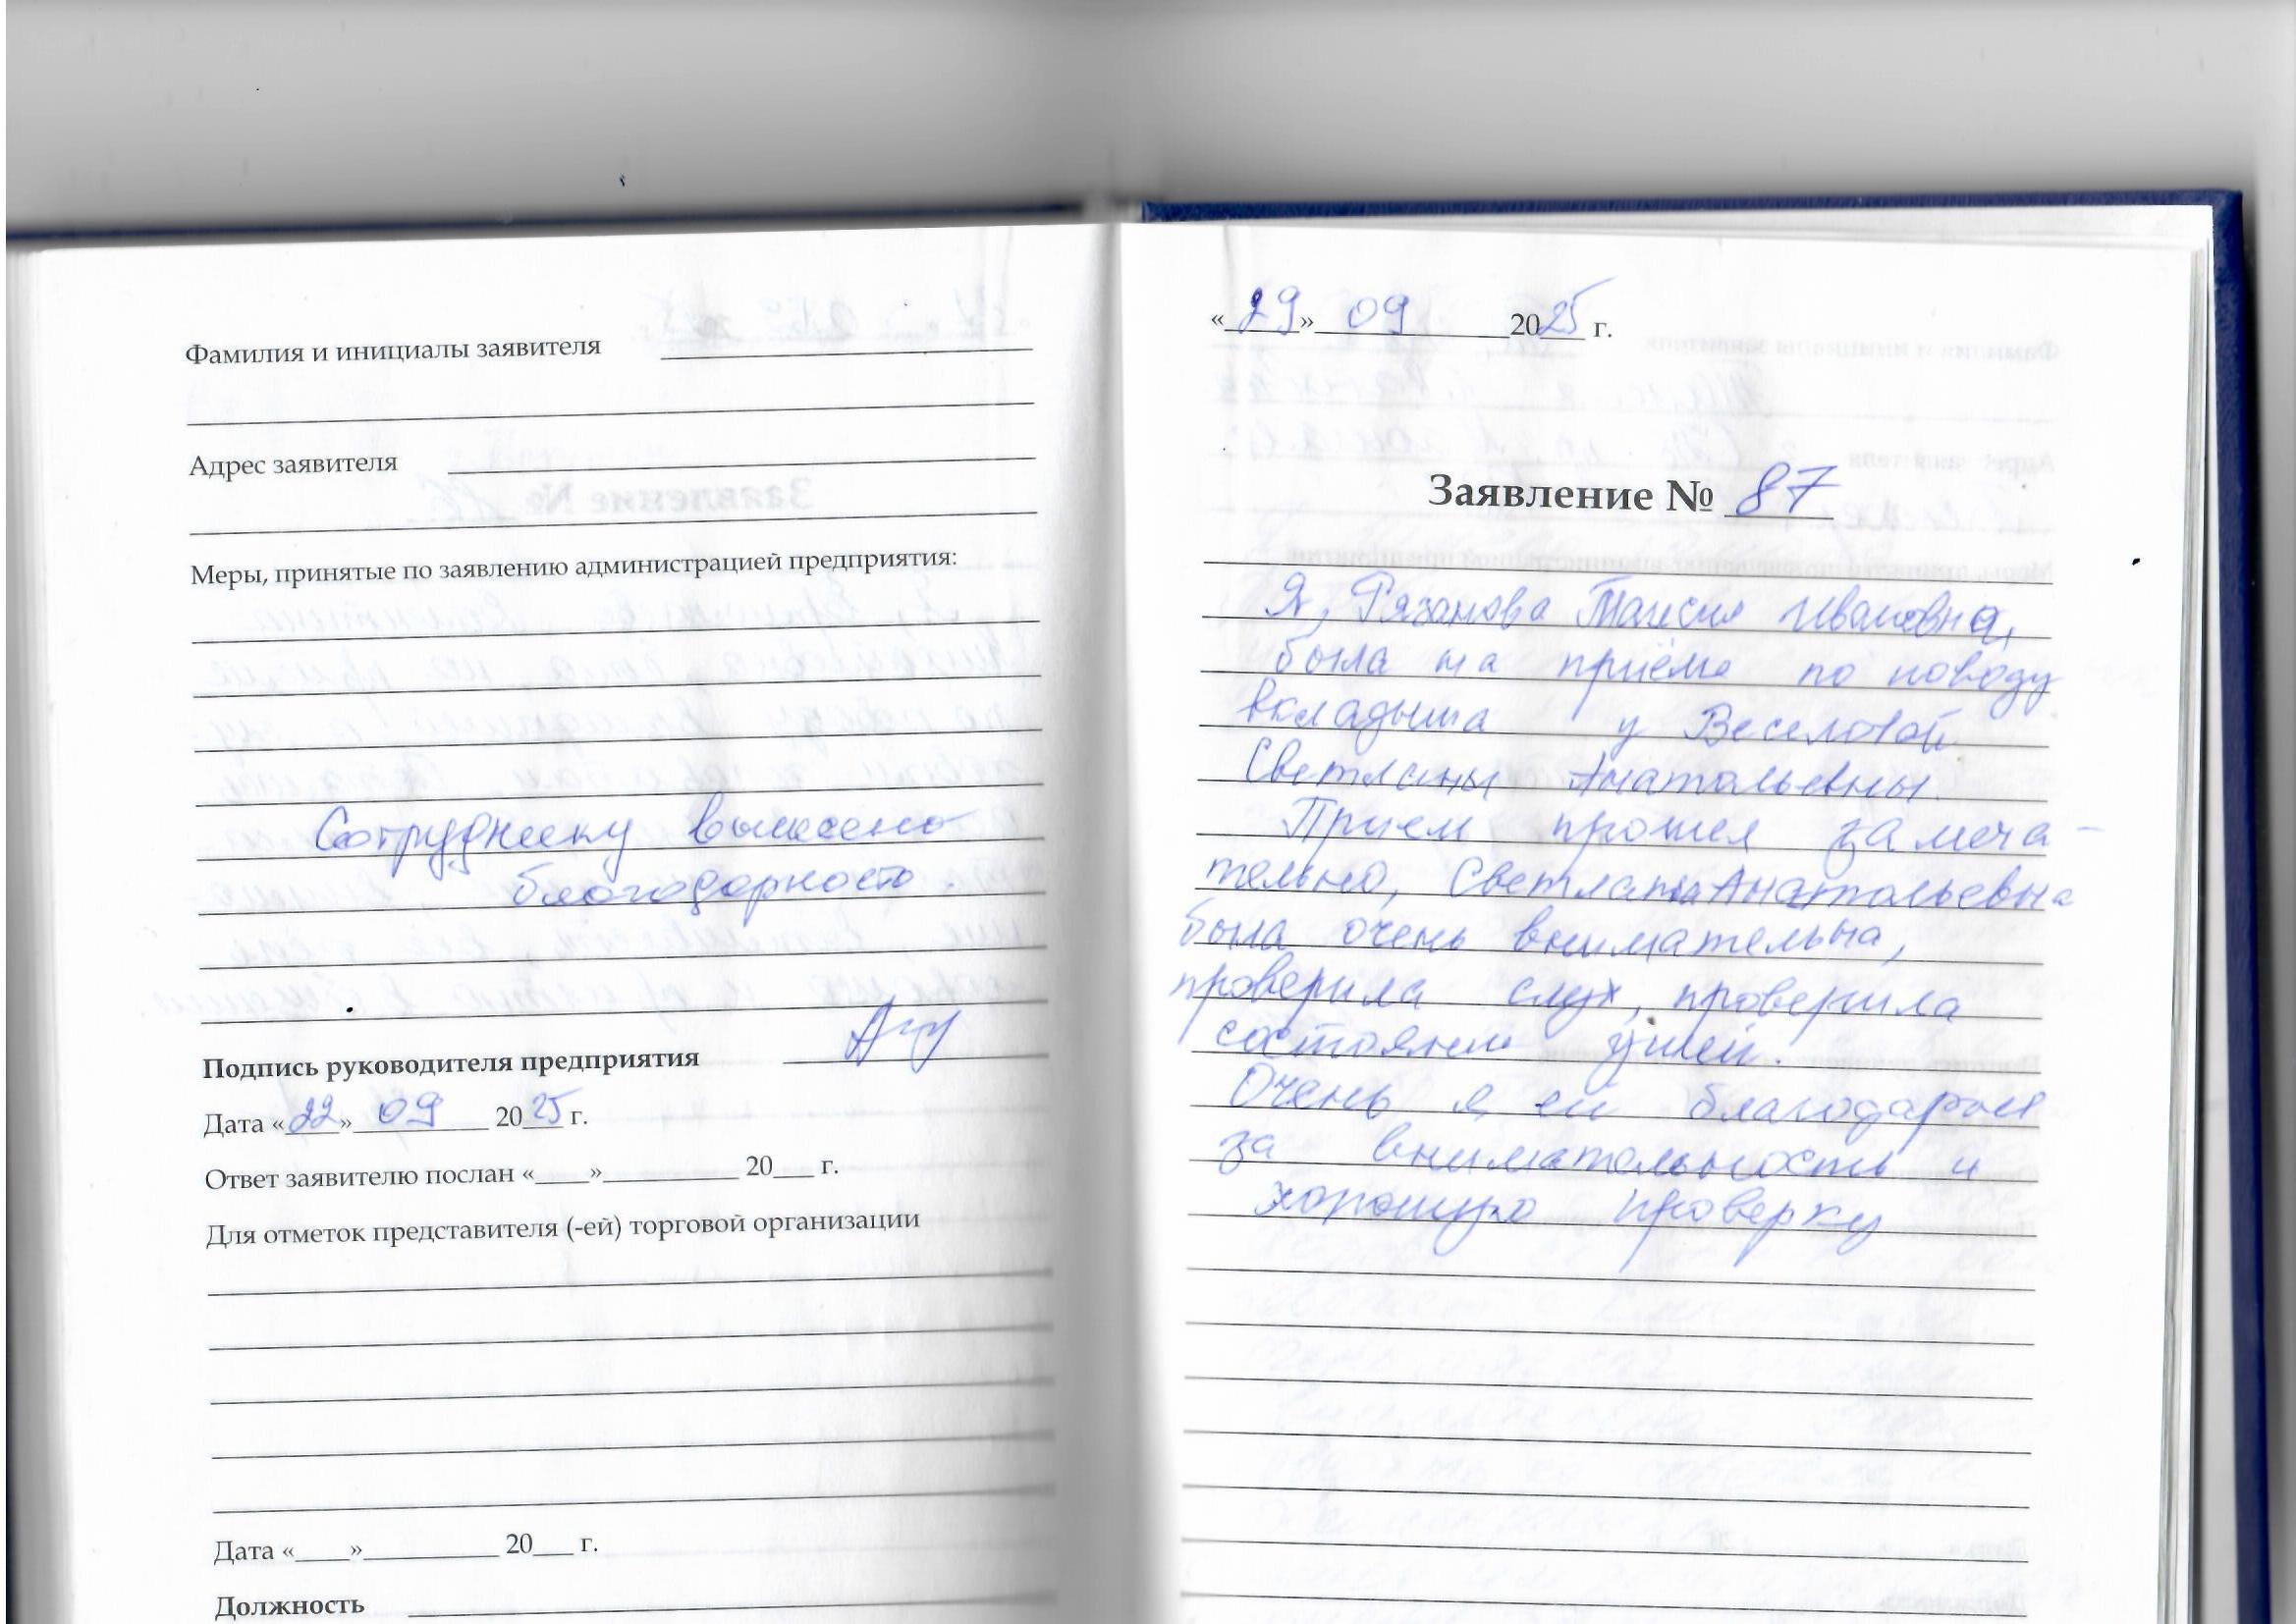 Фамилия и инициалы заявителя
Адрес заявителя
Меры, принятые по заявлению администрацией предприятия:
Сотруднику вынесено
благодарность.
Подпись руководителя предприятия
Дата «22» 09 2025 г.
Ответ заявителю послан «____»__________ 20___ г.
Для отметок представителя (-ей) торговой организации
Дата «____»__________ 20___ г.
Должность
«29» 09 2025 г.
Заявление № 87
Я, Рязанова Таисия Ивановна,
была на приёме по поводу
вкладыша у Веселовой
Светланы Анатольевны.
Прием прошел замеча-
тельно, Светлана Анатольевна
была очень внимательна,
проверила слух, проверила
состояние ушей.
Очень я ей благодарна
за внимательность и
хорошую проверку